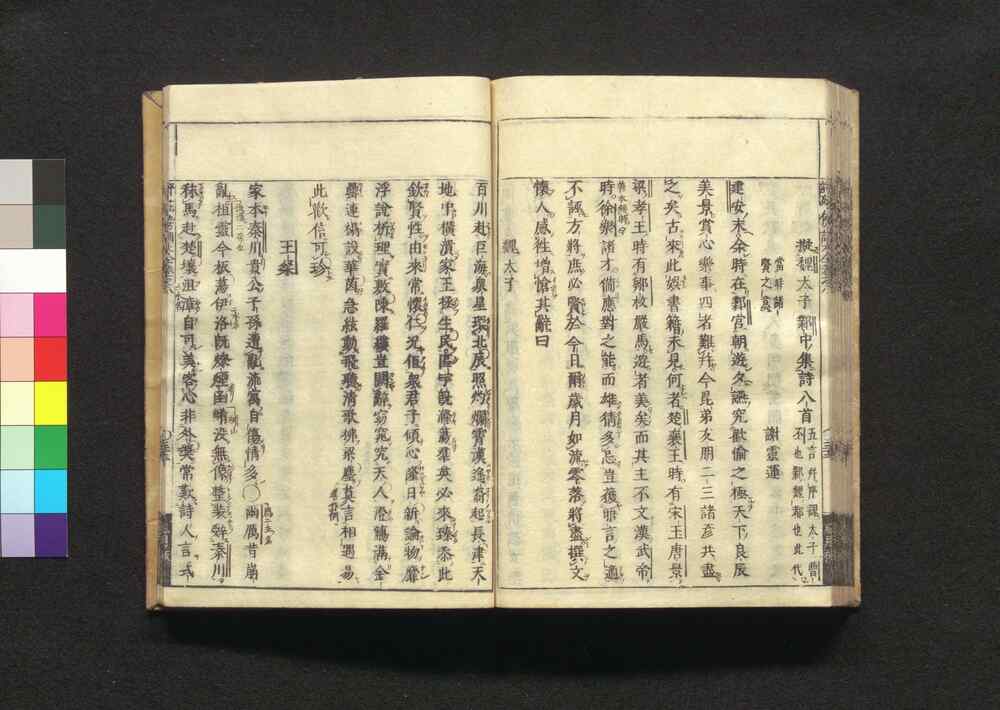 擬魏太子鄴中集詩八首
五言并序謀太子曹
丕也鄴魏都也此代
當時諸
賢之意
謝靈運
建安末余時在鄴宮朝遊夕讌究歡愉之極天下良辰
美景賞心樂事四者難并今昆弟友朋二三諸彥共盡
之矣古來此娛書籍未見何者楚襄王時有宋玉唐景
梁孝王時有鄒枚嚴馬遊者美矣而其主不文漢武帝
時徐樂諸才備應對之能而雄猜多忌豈獲晤言之適
不誣方將庶必賢於今日爾歲月如流零落將盡撰文
懷人感往增愴其辭曰
魏太子
百川赴巨海衆星環北辰照灼爛霄漢遙裔起長津天
地中橫潰家王拯生民區宇既滌蕩羣英必來臻忝此
欽賢性由來常懷仁况値衆君子傾心隆日新論物靡
浮說析理實敷陳羅縷豈闕辭窈窕究天人澄觴滿金
罍連榻設華茵急絃動飛聽清歌拂梁塵莫言相遇易
此歡信可珍
王粲
家本秦川貴公子孫遭亂流寓自傷情多
幽厲昔崩
亂桓靈今板蕩伊洛既燎煙函崤没無像整裝辭秦川
秣馬赴楚壤沮漳自可美客心非外奬常歎詩人言式